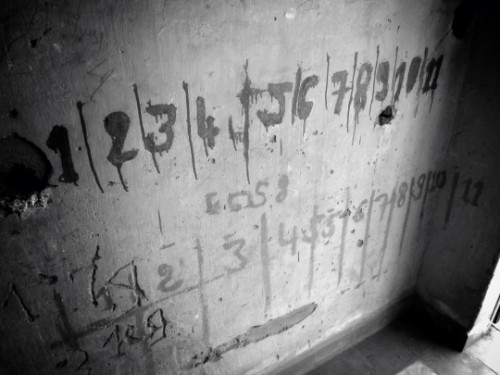 1 2 3 4 5 6 7 8 9 10 11
1 2 3 4 5 6 7 8 9 10 11